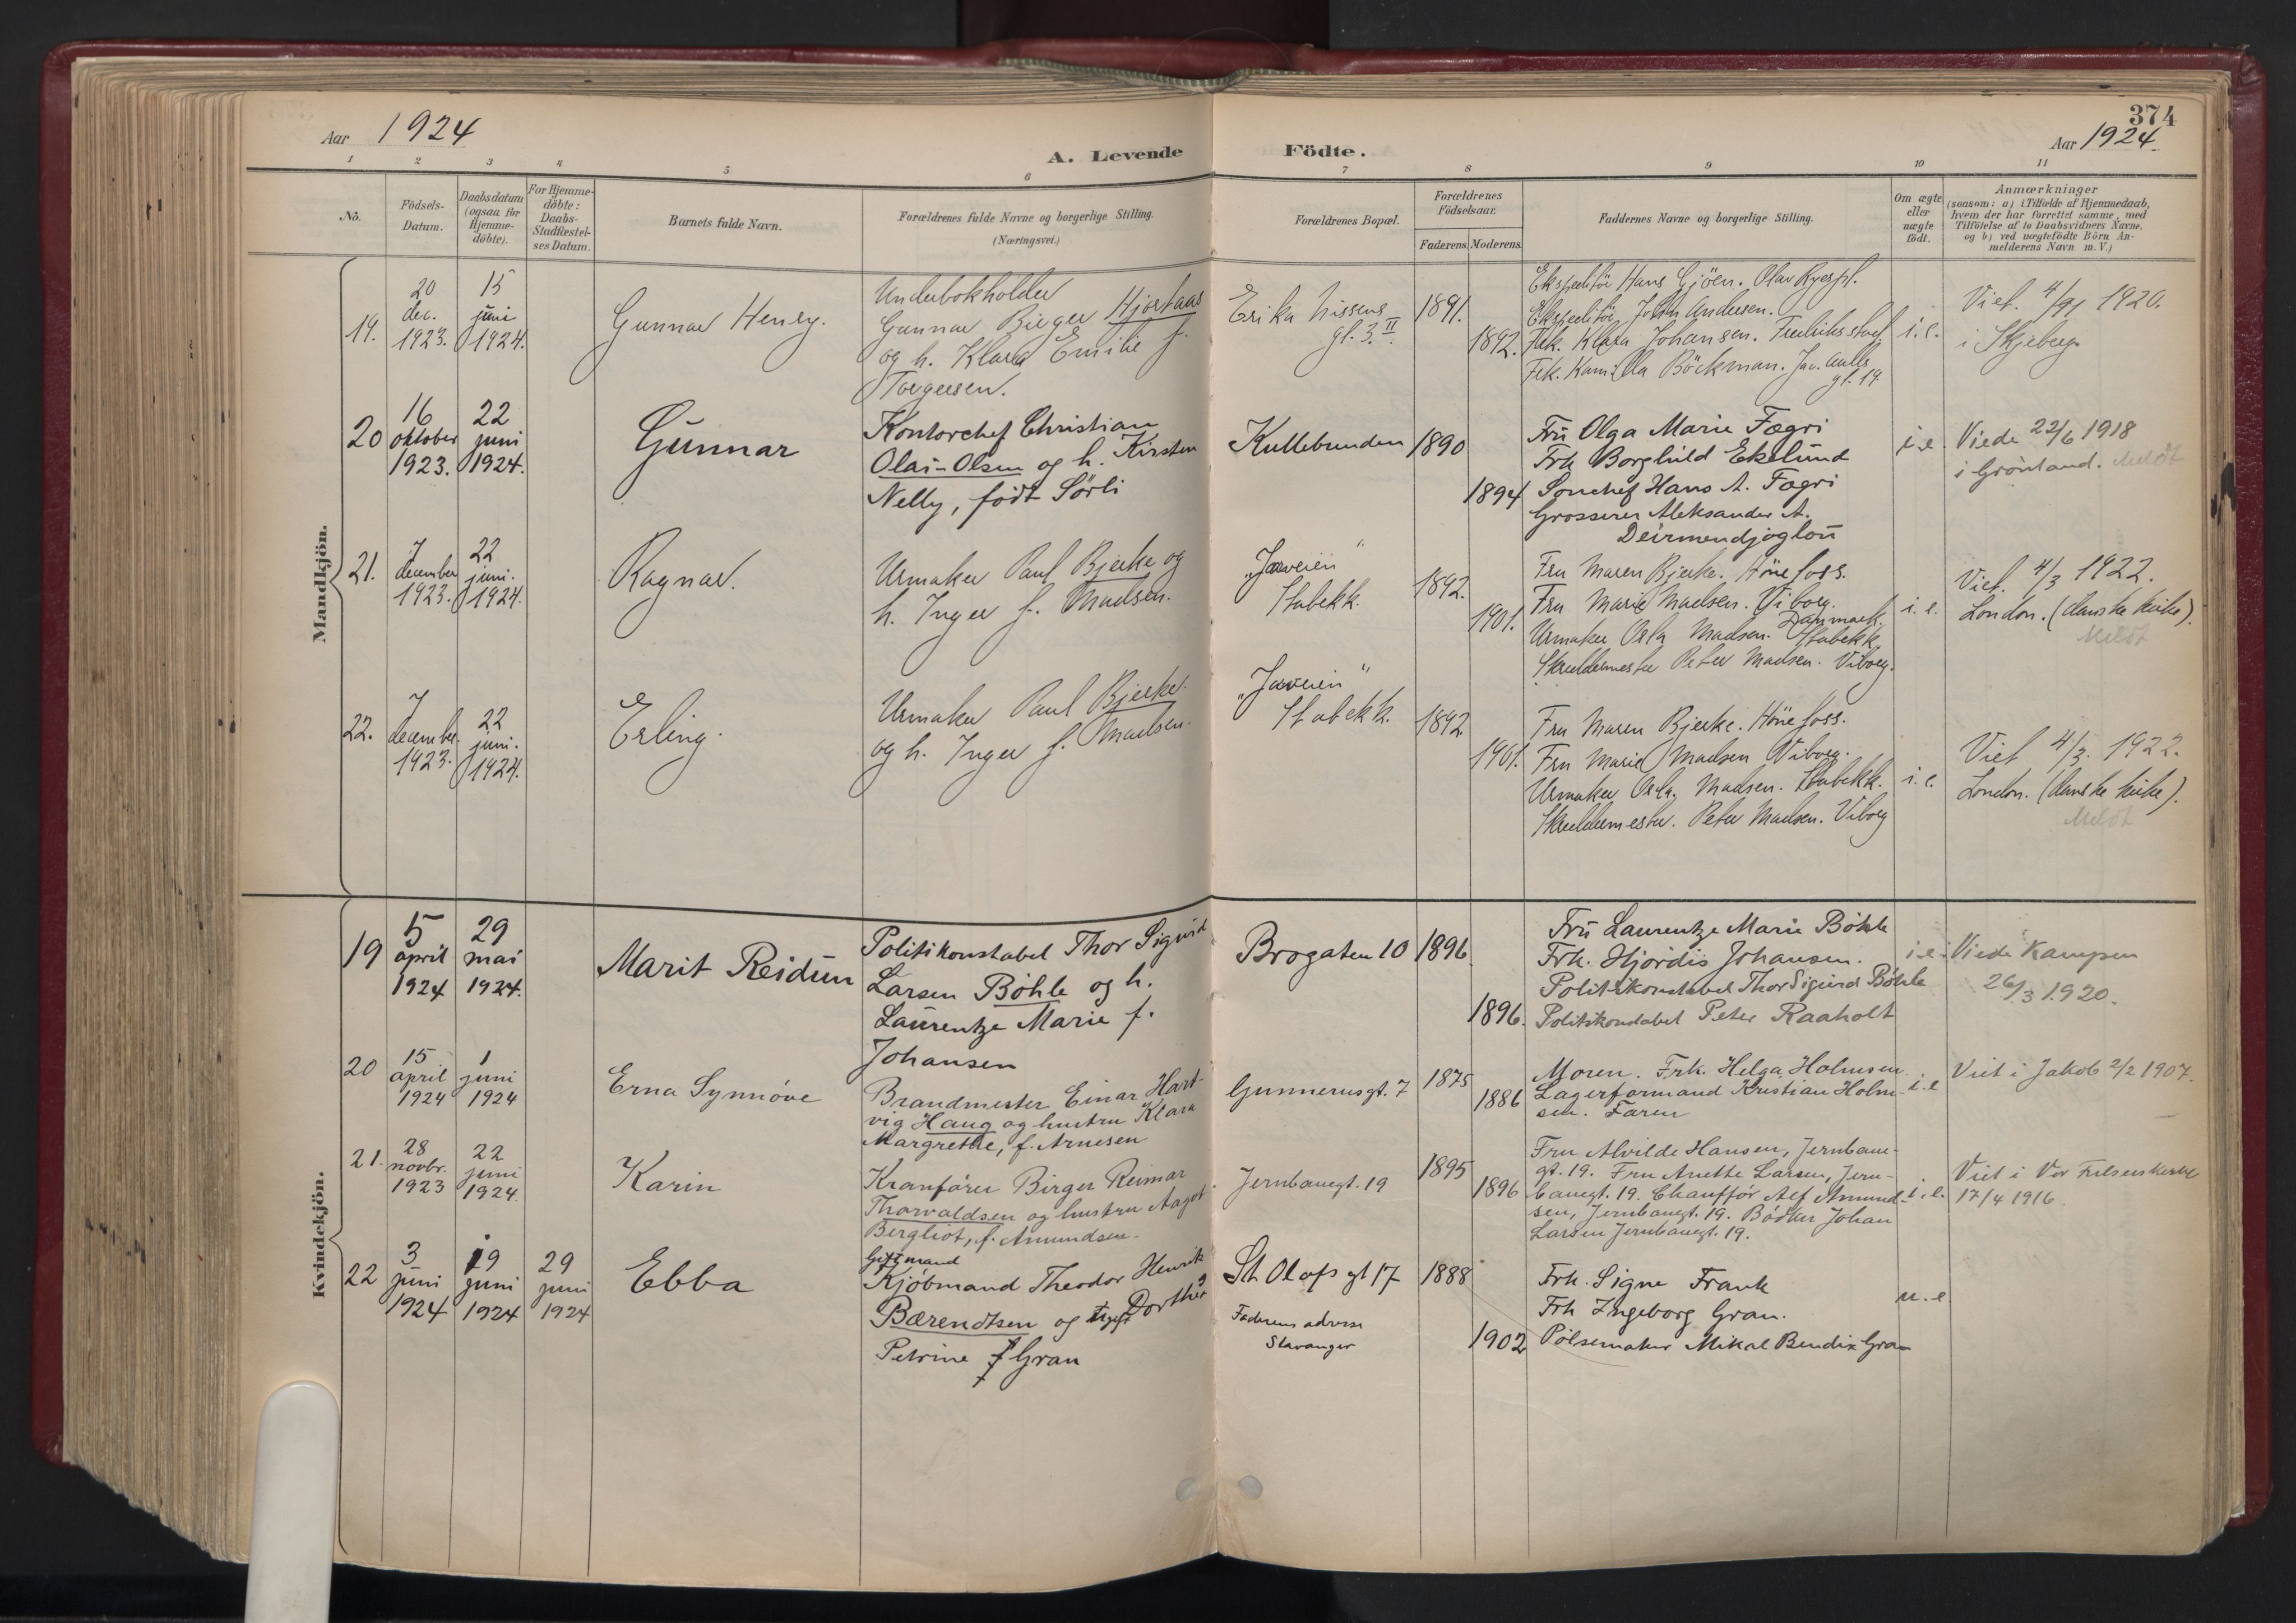 374
Aar 1924
A. Levende Födte.
Aar 1924.
1 2 3 4 5 6 7 8 9 10 11
Nö.
Födsels-
Datum.
Daabsdatum
(ogsaa for
Hjemme-
döbte).
For Hjemme-
döbte:
Daabs-
Stadfæstel-
ses Datum.
Barnets fulde Navn.
Forældrenes fulde Navne og borgerlige Stilling.
(Næringsvei.)
Forældrenes Bopæl.
Forældrenes
Födselsaar.
Faderens. Moderens.
Faddernes Navne og borgerlige Stilling.
Om ægte
eller
uægte
födt.
Anmærkninger
(saasom: a) i Tilfælde af Hjemmedaab,
hvem der har forrettet samme, med
Tilföielse af to Daabsvidners Navne.
og b) ved uægtefödte Börn An-
melderens Navn m. V.)
Mandkjön.
19.
20
dec.
1923.
15
juni
1924.
Gunnar Henry.
Underbokholder
Gunnar Birger Hjortaas
og h. Klara Emilie f.
Torgersen.
Erika Nissens
gt. 3 II
1891.
1892.
Ekspeditör Hans Gjöen. Olav Ryespl.
Ekspeditör John Andersen.
Frk. Klara Johansen. Fredriksstad
Frk. Kamilla Böckman. Jac. Aalls
gt. 19
i. e.
Viet. 4/9 1920.
i Skjeberg
20
16
oktober
1923.
22
juni
1924.
Gunnar
Kontorchef Christian
Olai-Olsen og h. Kirsten
Nelly, født Sörli
Kullebunden
1890
1894
Fru Olga Marie Fægri
Frk Borghild Ekelund
Sonchef Hans A. Fægri
Grosserer Aleksander A.
Deirmendjoglou
i. e.
Viede 22/6 1918
i Grönland. Meldt
21.
7
december
1923.
22
juni.
1924.
Ragnar.
Urmaker Paul Bjerke og
h. Inger f. Madsen.
"Jarveien"
Stabekk.
1892.
1901.
Fru Maren Bjerke. Hönefoss.
Fru Marie Madsen. Viborg.
Danmark.
Urmaker Orla Madsen. Stabekk
Skreddermester Peter Madsen. Viborg.
i. e.
Viet. 4/3 1922.
London. (danske kirke).
Meldt
22.
7
december.
1923.
22
juni.
1924.
Erling.
Urmaker Paul Bjerke
og h. Inger f. Madsen.
"Jarveien"
Stabekk.
1892
1901.
Fru Maren Bjerke. Hönefoss.
Fru Marie Madsen Viborg.
Urmaker Orla. Madsen. Stabekk.
Skreddermester. Peter Madsen. Viborg
i. e.
Viet 4/3. 1922.
London. (danske kirke).
Meldt
Kvindekjön.
19
5
april
1924
29
mai
1924.
Marit Reidun
Politikonstabel Thor Sigurd
Larsen Böhle og h.
Laurentze Marie f.
Johansen
Brogaten 10
1896
1896.
Fru Laurentze Marie Böhle
Frk. Hjördis Johansen.
Politikonstabel Thor Sigurd Böhle
Politikonstabel Peter Raaholt
i. e.
Viede Kampen
26/3 1920.
20
15
april
1924
1
juni
1924
Erna Synnöve
Brandmester Einar Hart-
vig Haug og hustru Klara
Margrethe, f. Arnesen
Gunnerusgt. 7
1875
1886
Moren. Frk. Helga Holmsen.
Lagerformand Kristian Holm-
sen. Faren
i. e
Viet i Jakob 2/2 1907.
21.
28
novbr.
1923
22
juni
1924.
Karin
Kranförer Birger Reimar
Thorvaldsen og hustru Aagot
Bergliot, f. Amundsen.
Jernbanegt. 19
1895
1896
Fru Alvilde Hansen, Jernbane-
gt. 19. Fru Anette Larsen, Jern-
banegt. 19. Chauffför Alf Amund-
sen, Jernbanegt. 19. Bödker Johan
Larsen Jernbanegt. 19.
i. e.
Viet i Vor Frelsers kirke
17/4 1916.
22
3
juni
1924
19
juni
1924
29
juni
1924
Ebba
Gift mand
Kjöbmand Theodor Henrik
Bærendtsen og Ugift Dorthea
Petrine Gran
St Olafs gt 17
Faderens adresse
Stavanger
1888
1902
Frk. Signe Frank
Frk Ingeborg Gran.
Pölsemaker Mikal Bendix Gran
u. e.